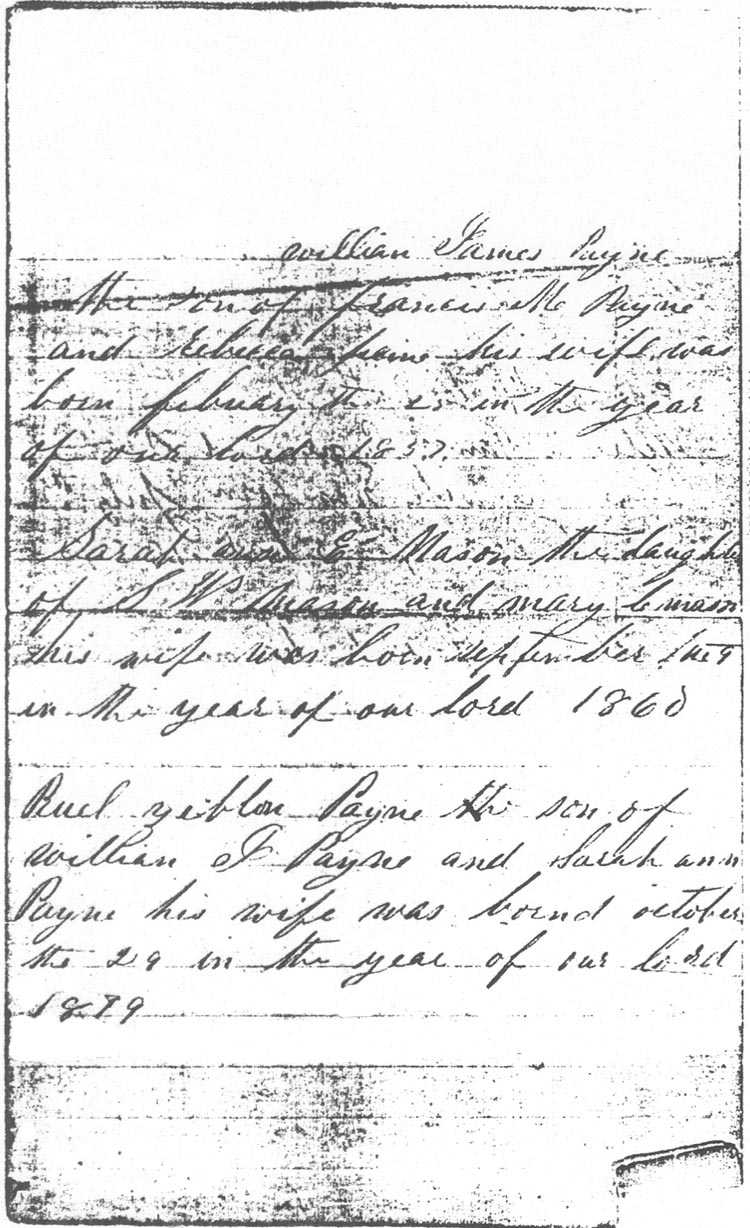 willian James Payne
the son of francis M Payne
and Rebecca his wife was
born febuary the in the year
of our lord 1857
Sarah ann E Mason the daughter
of S W Mason and mary C mason
his wife was born september the 9
in the year of our lord 1860
Ruel yeiblon Payne the son of
willian J Payne and Sarah ann
Payne his wife was bornd october
the 29 in the year of our lord
1879